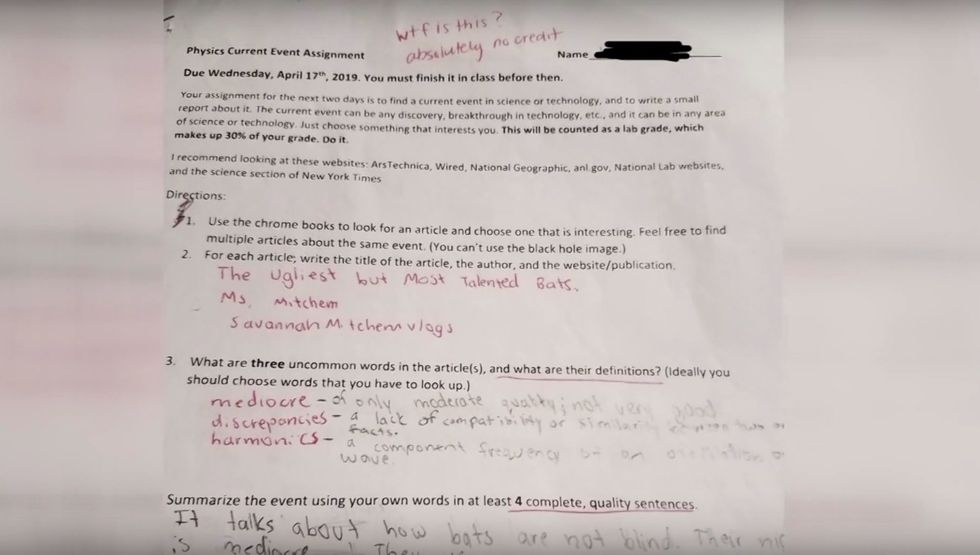 wtf is this?
absolutely no credit
Physics Current Event Assignment
Name
Due Wednesday, April 17th, 2019. You must finish it in class before then.
Your assignment for the next two days is to find a current event in science or technology, and to write a small
report about it. The current event can be any discovery, breakthrough in technology, etc., and it can be in any area
of science or technology. Just choose something that interests you. This will be counted as a lab grade, which
makes up 30% of your grade. Do it.
I recommend looking at these websites: ArsTechnica, Wired, National Geographic, anl.gov, National Lab websites,
and the science section of New York Times
Directions:
1. Use the chrome books to look for an article and choose one that is interesting. Feel free to find
multiple articles about the same event. (You can't use the black hole image.)
2. For each article, write the title of the article, the author, and the website/publication.
The Ugliest but Most Talented Bats.
Ms. Mitchem
Savannah Mitchem vlogs
3. What are three uncommon words in the article(s), and what are their definitions? (Ideally you
should choose words that you have to look up.)
mediocre - of only moderate quality; not very good
discrepancies - a lack of compatibility or similarity between two or
facts.
harmonics - a component frequency of an oscillation or
wave.
Summarize the event using your own words in at least 4 complete, quality sentences.
It talks about how bats are not blind. Their
is mediocre